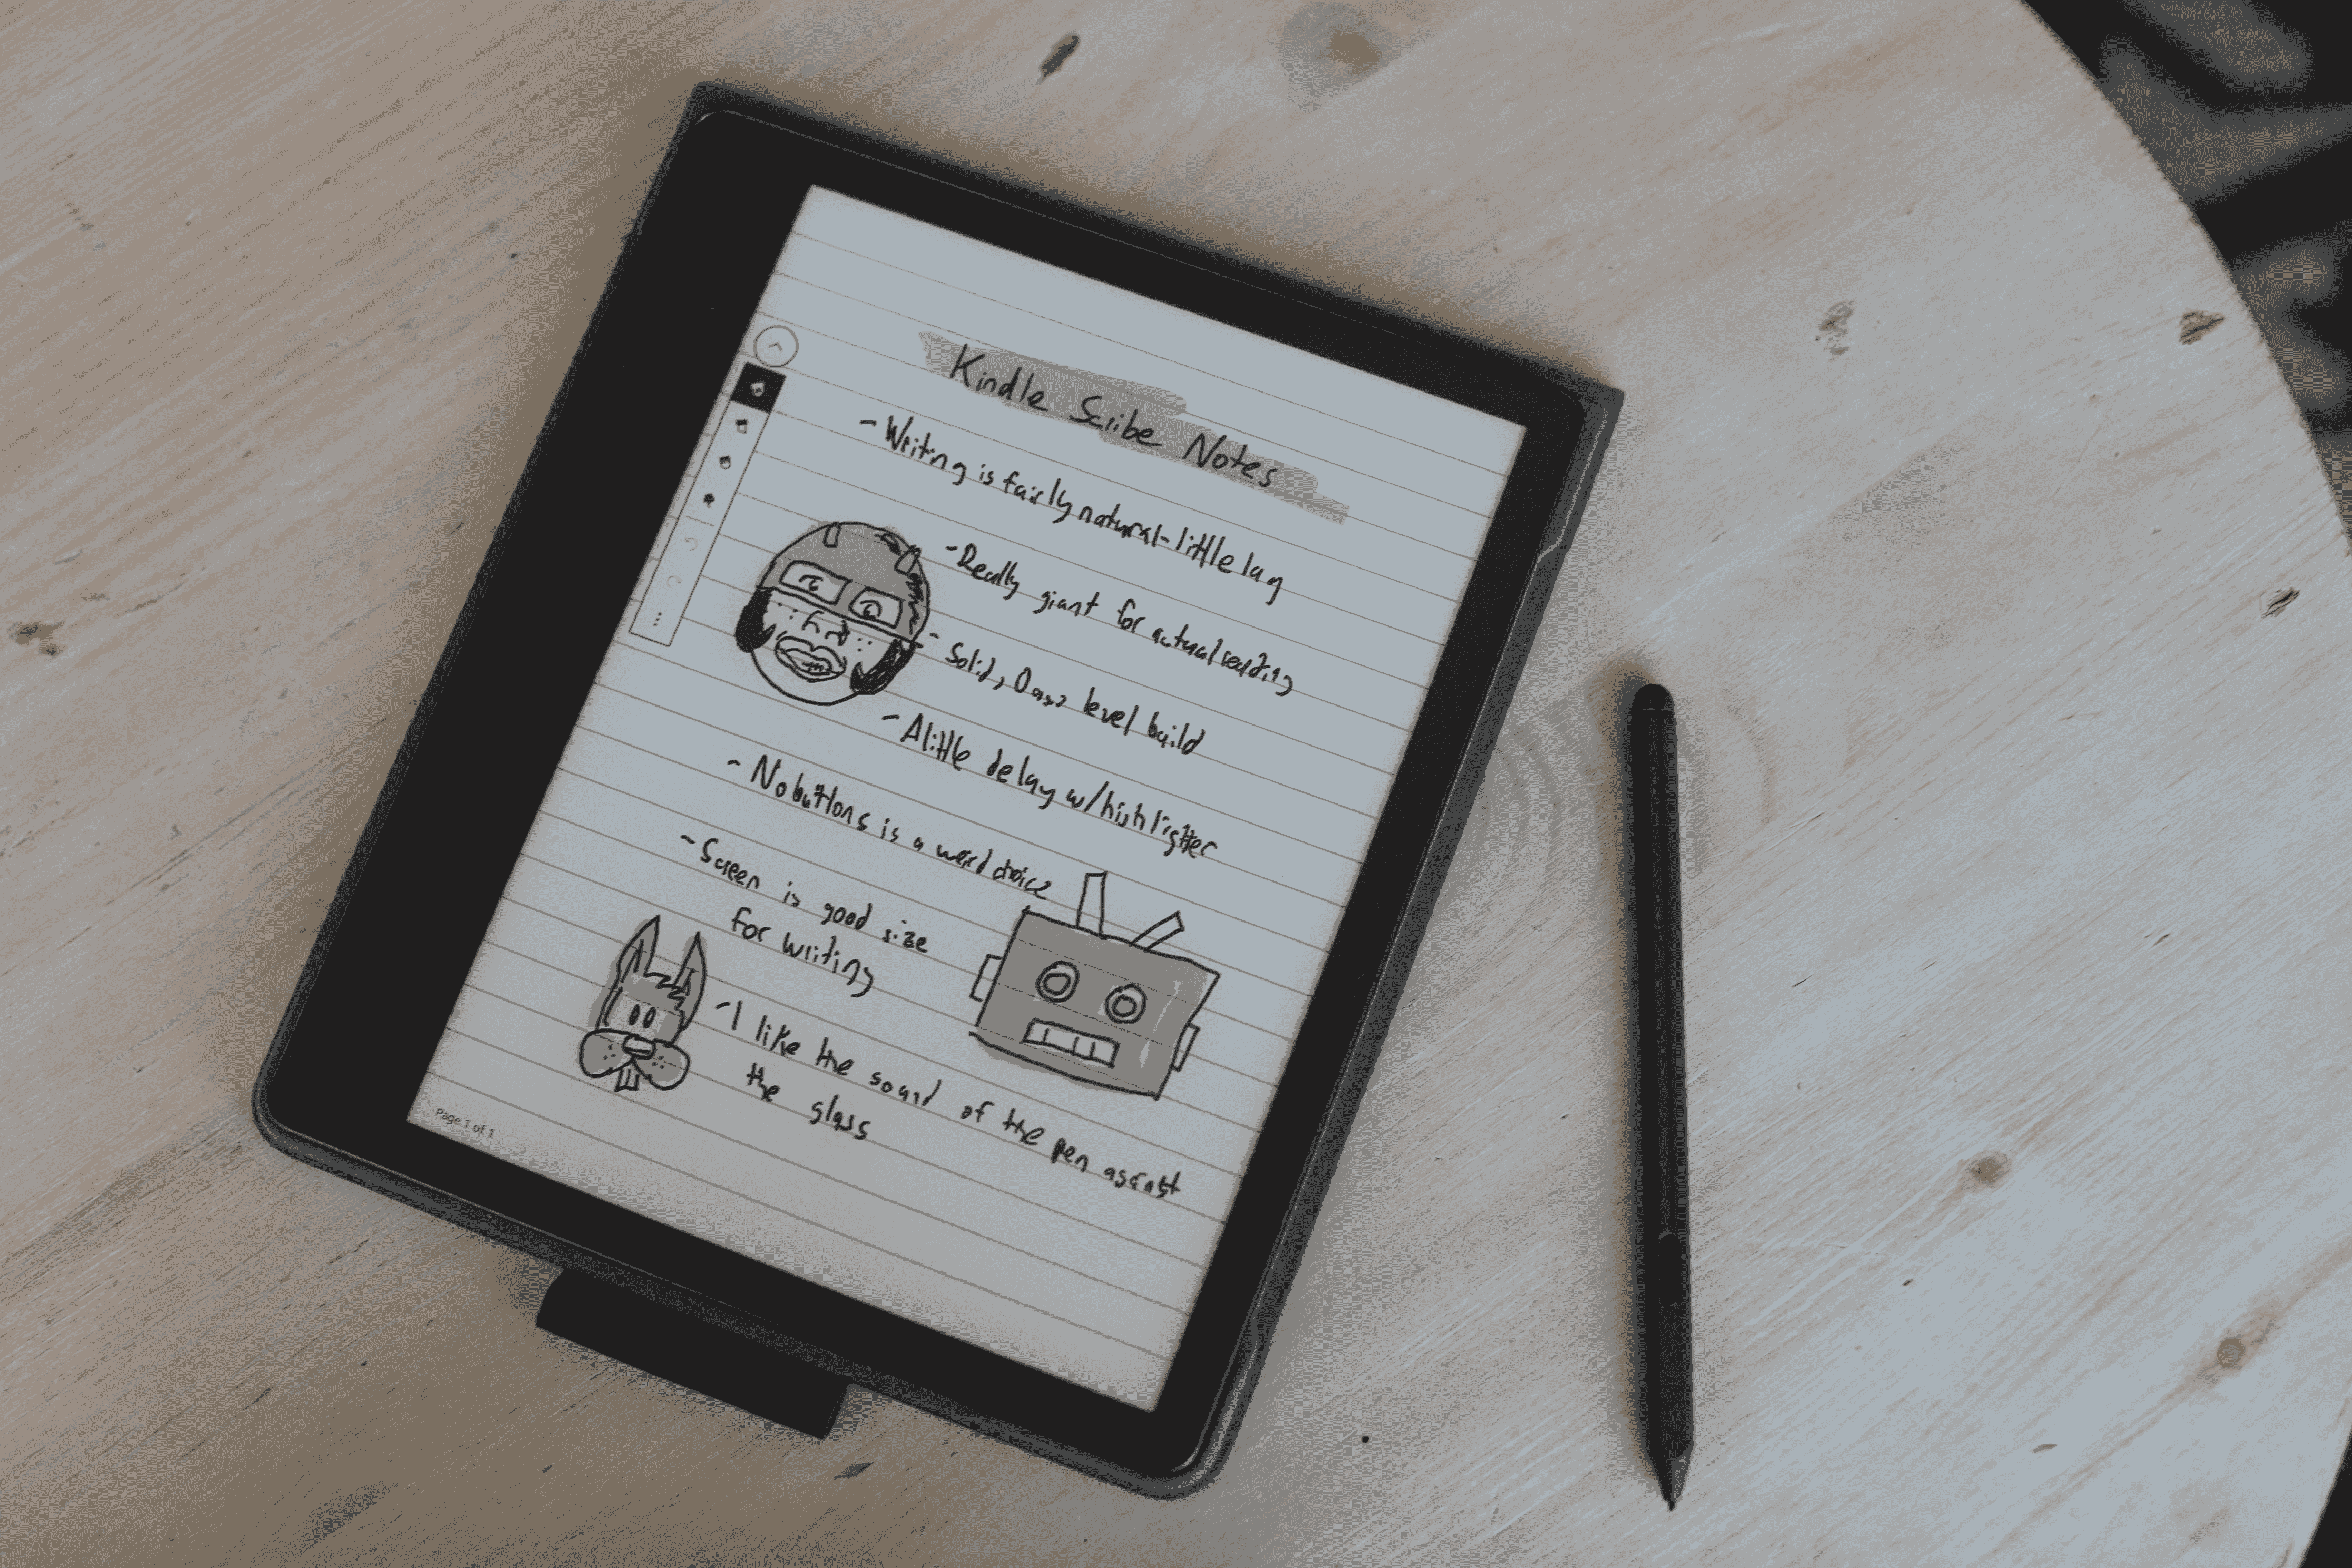 Kindle Scribe Notes
- Writing is fairly natural - little lag
- Really giant for actual reading
- Solid, Oasis level build
- A little delay w/highlighter
- No buttons is a weird choice
- Screen is good size
for writing
- I like the sound of the pen against
the glass
Page 1 of 1